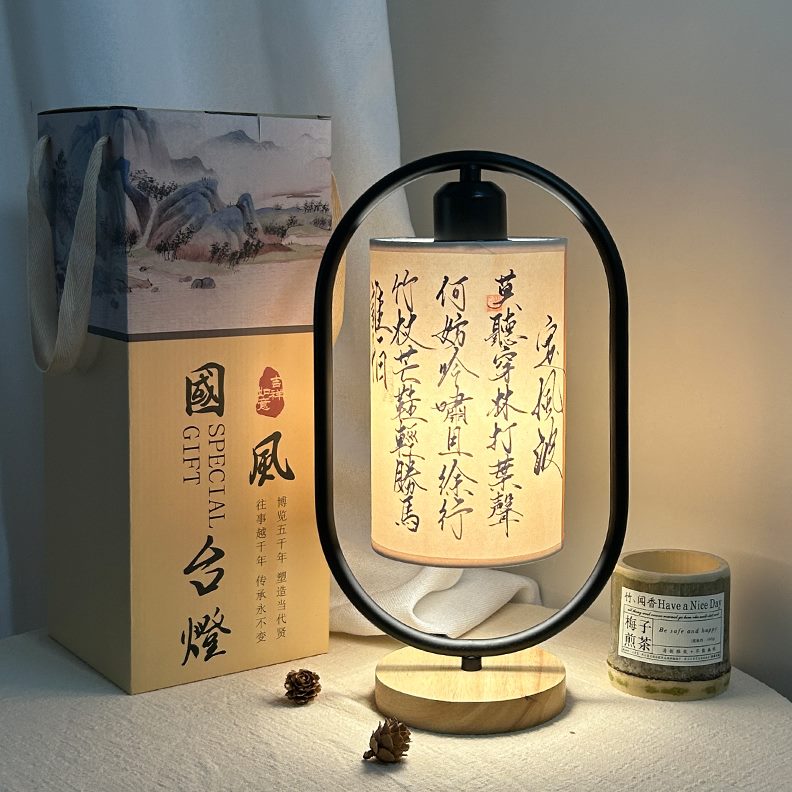 國
風
台燈
SPECIAL
GIFT
吉祥
如意
博览五千年 塑造当代贤
往事越千年 传承永不变
定風波
莫聽穿林打葉聲
何妨吟嘯且徐行
竹杖芒鞋輕勝馬
誰怕
竹、闻香 Have a Nice Day
梅子
煎茶
Be safe and happy